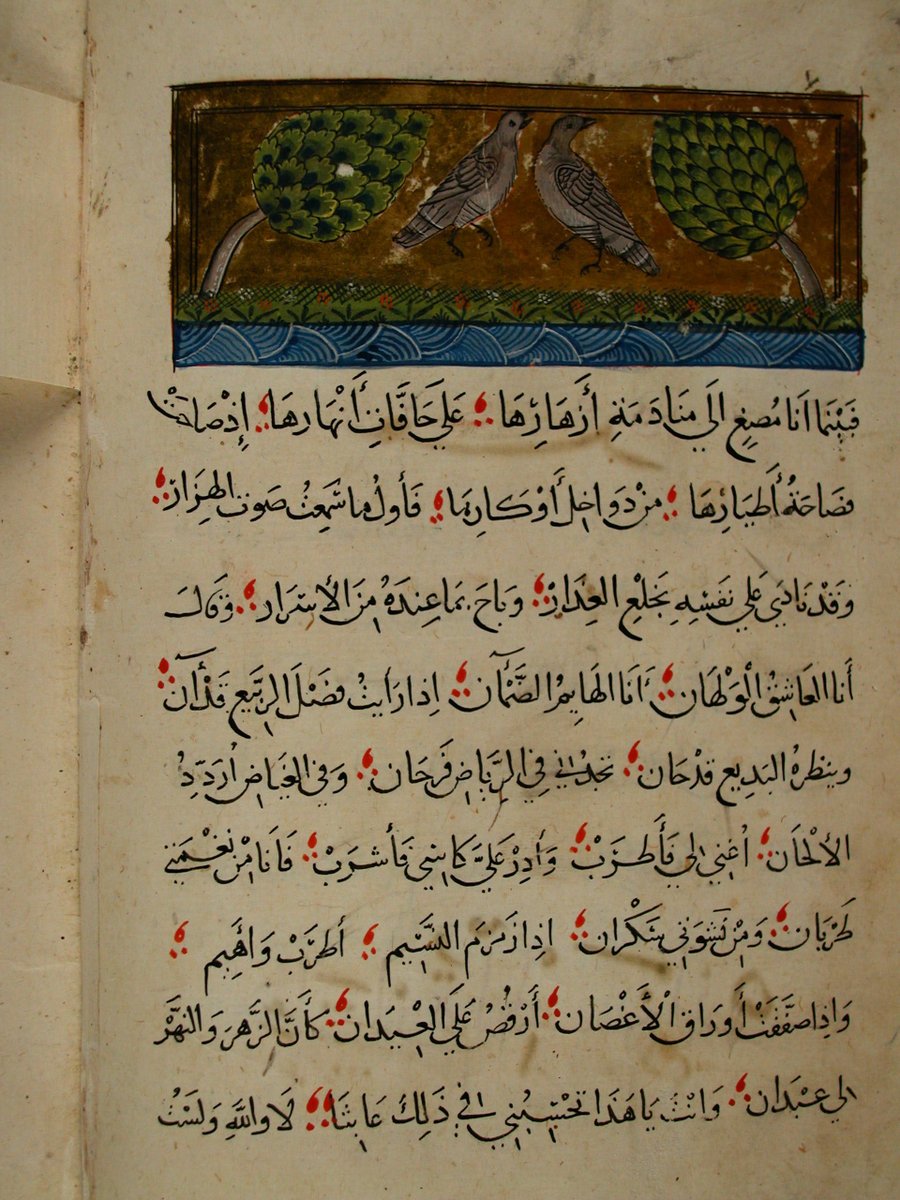 فَبَيْنَمَا اَنَا مُصْغٍ اِلَي مُنَادَمَةِ أَزْهَارِهَا عَلَي حَافَّاتِ أَنْهَارِهَا إِذْ صَاحَتْ
فصَاحَةُ أَطْيَارِهَا مِنْ دَوَاخِلِ أَوْكَارِهَا فَأَولُ مَا سَمِعْتُ صَوْتَ الهِزَارْ
وَقَدْ نَادَي عَلَي نَفْسِهِ بِخَلْعِ العِذَارْ وَبَاحَ بمَا عِنْدَهُ مِنَ الأَسْرَارِ وَقَالَ
أَنَا العَاشِقُ الْوَلْهَان أَنَا الهَايِمُ الضَّمْآن اِذَا رَأيتُ فصْلَ الرَّبِيعِ قَدْ آن
وَمنظرهُ البَدِيع قدْ حَان تجدُنِي فِي الرِّيَاضِ فَرْحَان وَفِي الغِيَاضِ أُرَدِّدُ
الأَلْحَان أُغَنِّي لِي فَأَطْرَبْ وَأُدِرْ عَلَيَّ كَاسِي فَأَشرَبْ فَأَنَا مِنْ نَغْمَتِي
طَرْبَان وَمِنْ نَشْوَتِي سَكْرَان اِذَا زَمْزَمَ النَّسِيم أَطرَبْ وَأَهِيم
وَاِذَا صَفَّقَتْ أَوْرَاق الْأَغْصَان أَرْقُصُ عَلَي العِيدَان كَأَنَّ الزَّهرَ وَالنهْرَ
لي عبْدَان وَانتَ يَا هَذَا تَحْسَبُنِي فِي ذَلِكَ عَابِثًا لَا وَاللَّهِ وَلَسْتُ